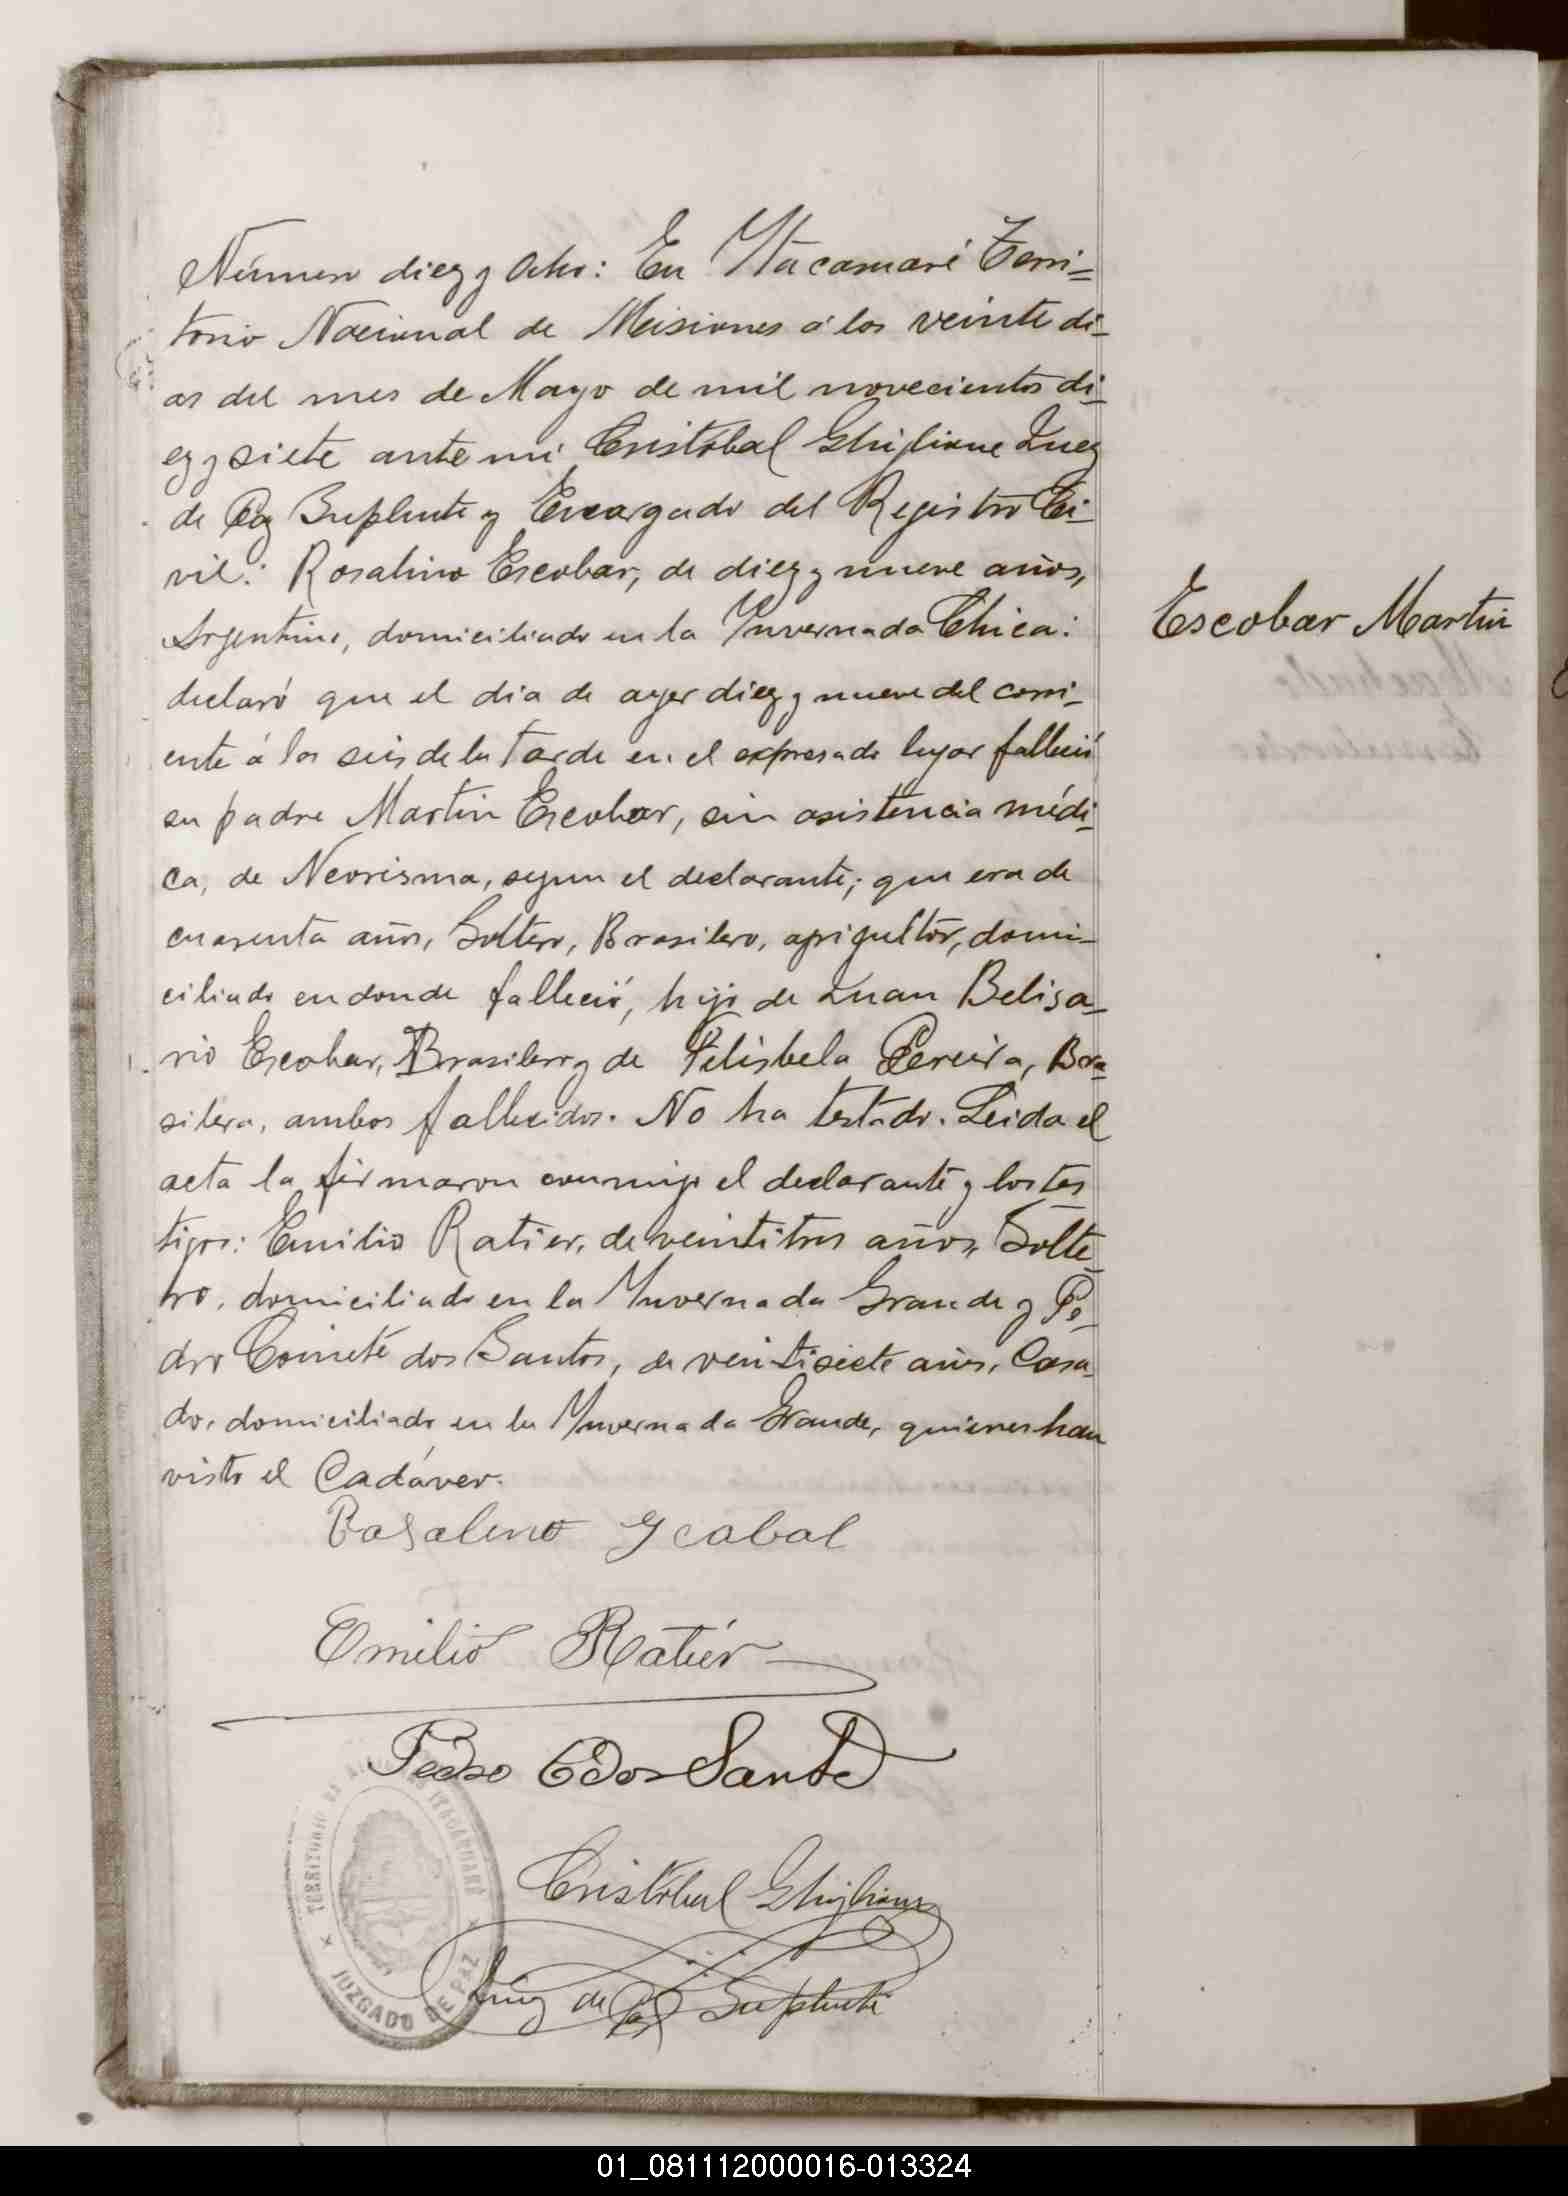 Número diez y Ocho: En Ytacaruaré Terri-
torio Nacional de Misiones á los veinte di-
as del mes de Mayo de mil novecientos di-
ez y siete ante mi Cristóbal Ghiglione Juez
de Paz Suplente y Encargado del Registro Ci-
vil: Rosalino Escobar, de diez y nueve años,
Argentino, domiciliado en la Ynvernada Chica:
declaró que el dia de ayer diez y nueve del corri-
ente á las seis de la tarde en el expresado lugar falleció
su padre Martin Escobar, sin asistencia médi-
ca, de Neorisma, segun el declarante; que era de
cuarenta años, Soltero, Brasilero, agricultor, domi-
ciliado en donde falleció, hijo de Juan Belisa-
rio Escobar, Brasilero y de Felisbela Pereira, Bra-
silera, ambos fallecidos. No ha testado. Leida el
acta la firmaron conmigo el declarante y los tes
tigos: Emilio Ratier, de veintitres años, Solte-
ro, domiciliado en la Ynvernada Grande y Pe-
dro dos Santos, de veintisiete años, Casa-
do, domiciliado en la Ynvernada Grande, quienes han
visto el Cadáver.
Escobar Martin
Rosalino Scabal
Emilio Ratiér
Pedro C dos Santo
Cristóbal Ghiglione
Juez de Paz Suplente
TERRITORIO DE ITACARUARÉ
JUZGADO DE PAZ
01_081112000016-013324